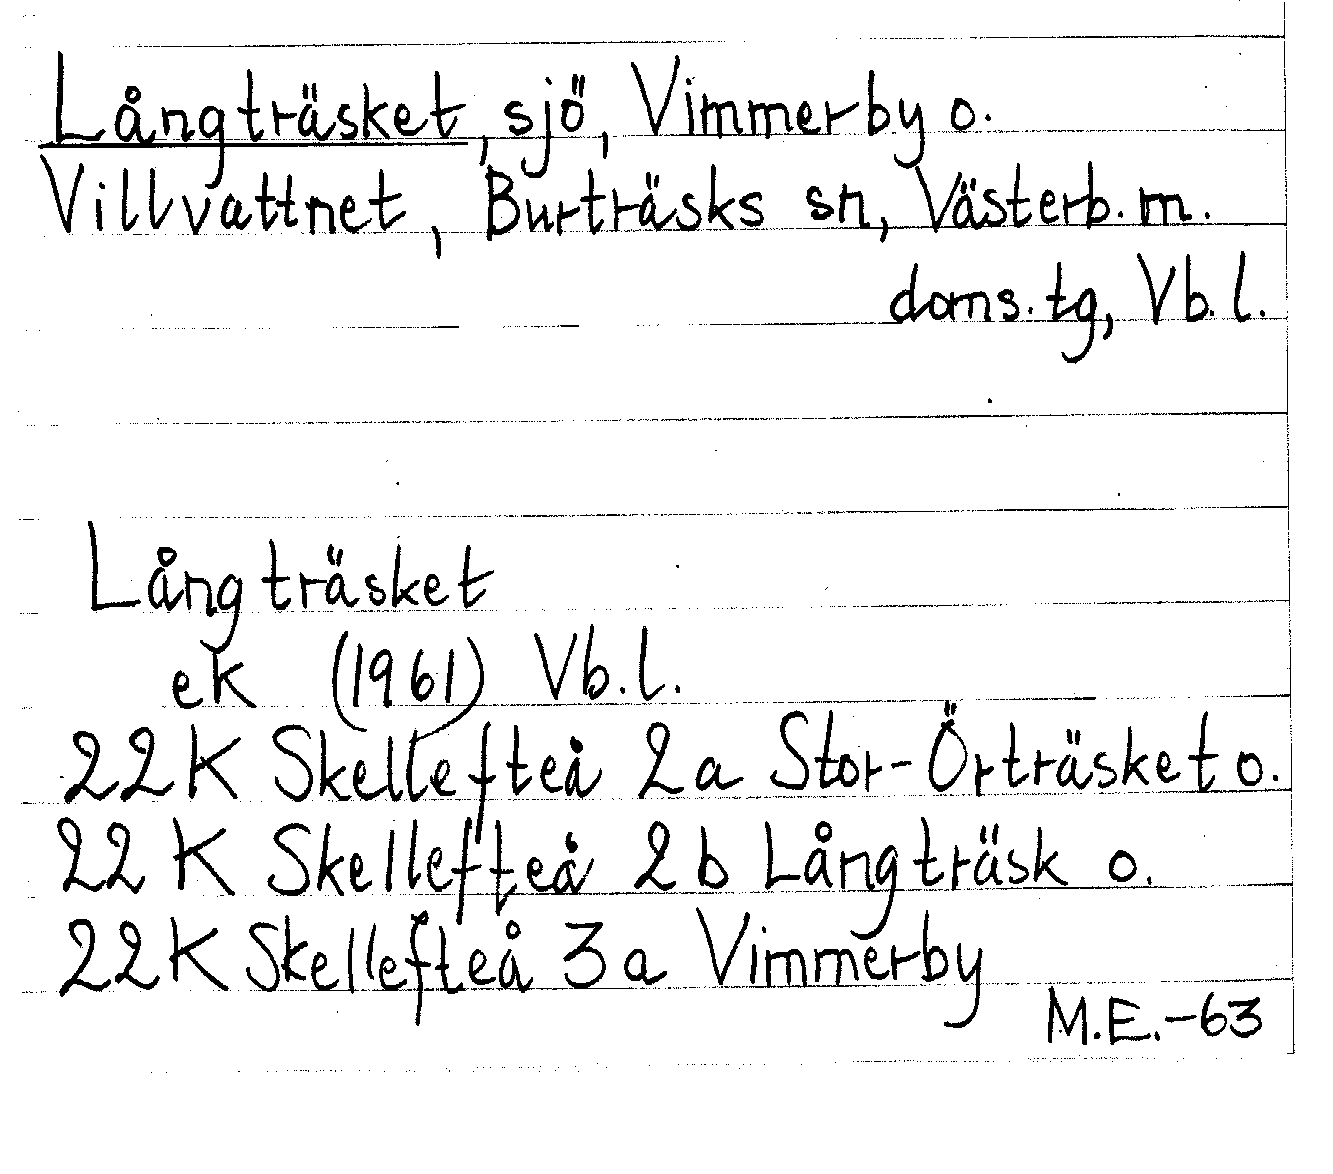 Långträsket, sjö, Vimmerby o.
Villvattnet, Burträsks sn, Västerb. m.
doms. tg, Vb. l.
Långträsket
ek (1961) Vb. l.
22K Skellefteå 2a Stor-Örträsket o.
22 K Skellefteå 2b Långträsk o.
22K Skellefteå 3a Vimmerby
M.E.-63